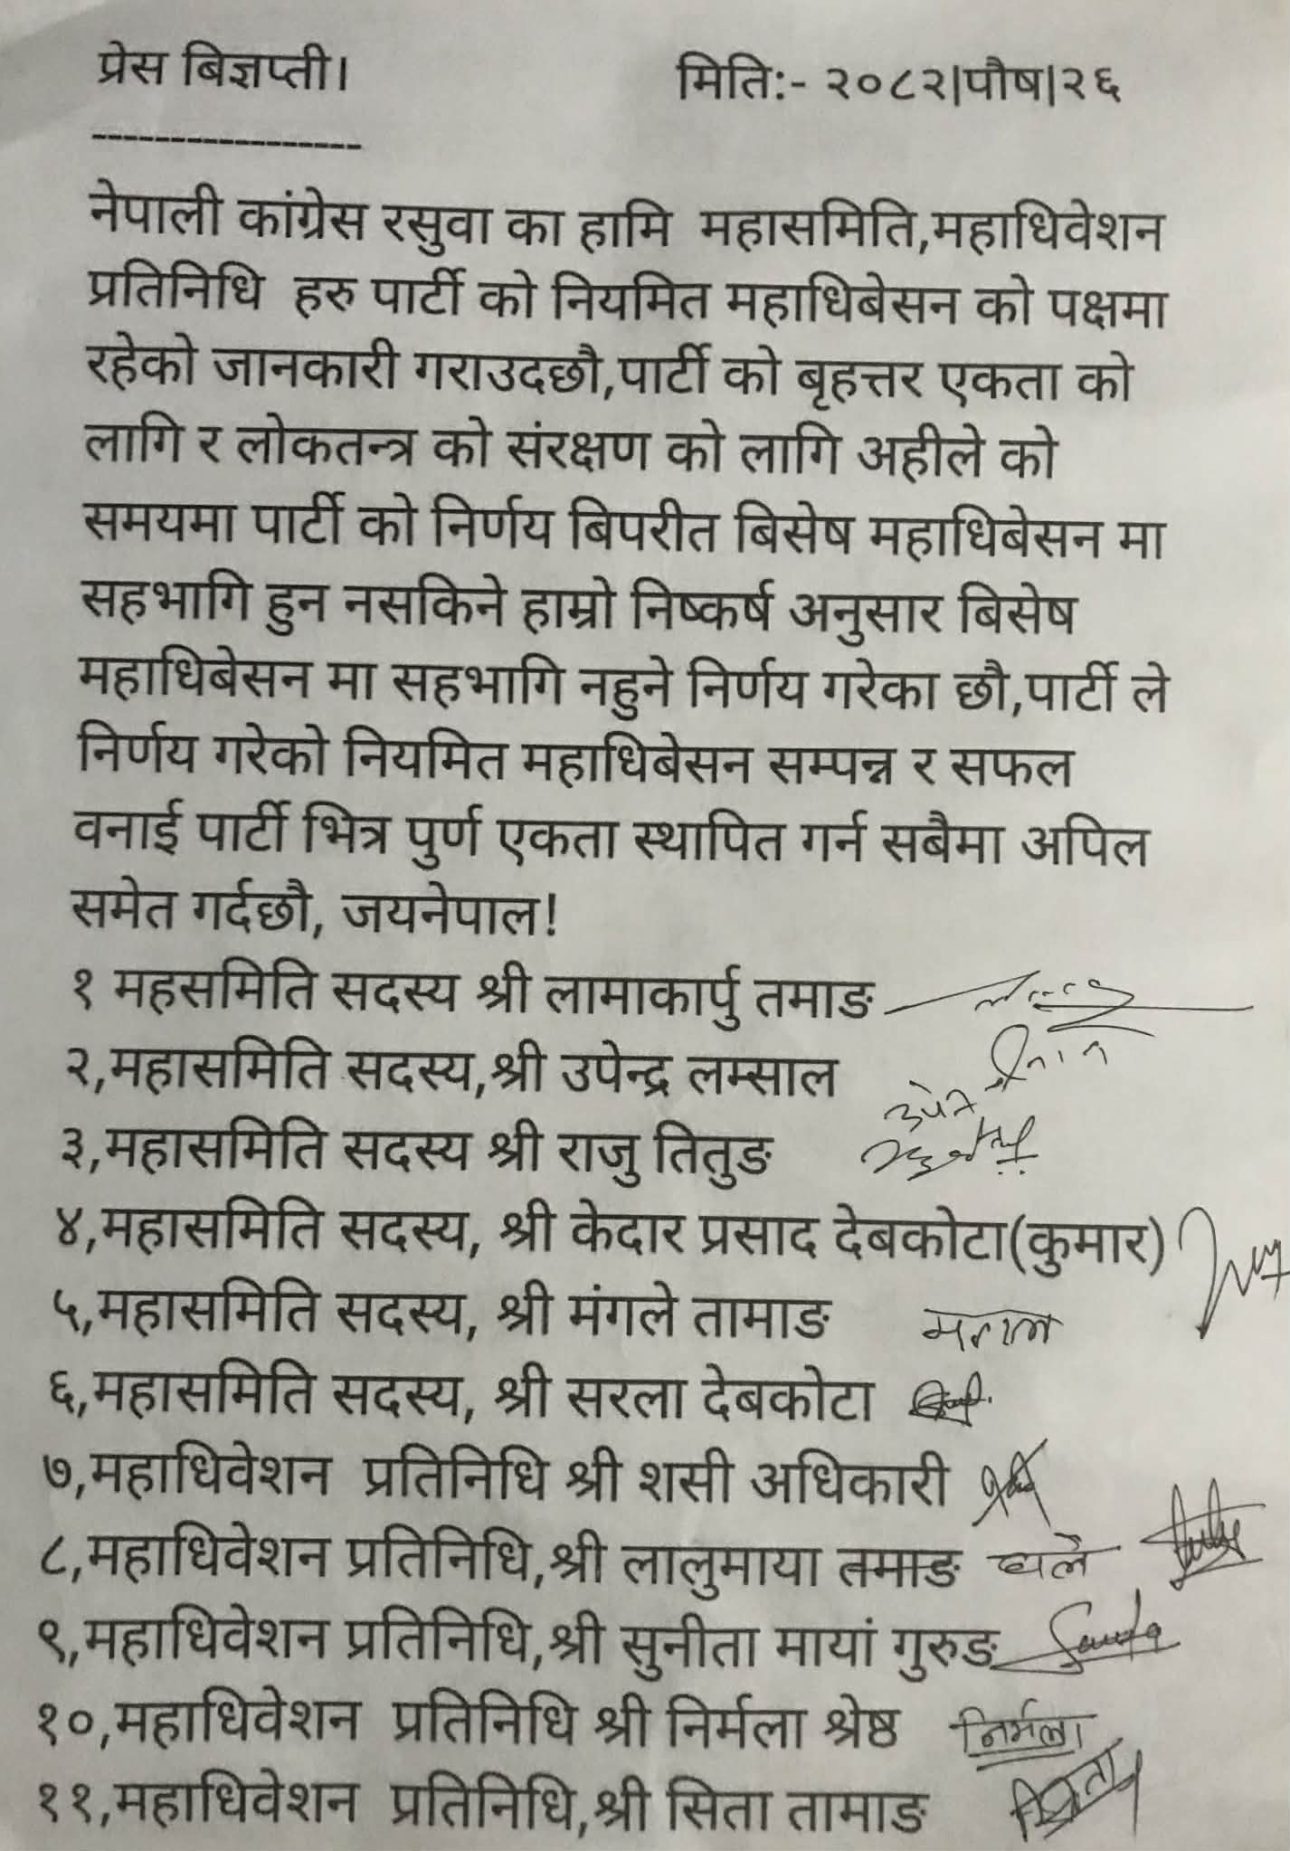 प्रेस बिज्ञप्ती।
मिति:- २०८२|पौष|२६
-----------------
नेपाली कांग्रेस रसुवा का हामि महासमिति,महाधिवेशन
प्रतिनिधि हरु पार्टी को नियमित महाधिबेसन को पक्षमा
रहेको जानकारी गराउदछौ,पार्टी को बृहत्तर एकता को
लागि र लोकतन्त्र को संरक्षण को लागि अहीले को
समयमा पार्टी को निर्णय बिपरीत बिसेष महाधिबेसन मा
सहभागि हुन नसकिने हाम्रो निष्कर्ष अनुसार बिसेष
महाधिबेसन मा सहभागि नहुने निर्णय गरेका छौ,पार्टी ले
निर्णय गरेको नियमित महाधिबेसन सम्पन्न र सफल
वनाई पार्टी भित्र पुर्ण एकता स्थापित गर्न सबैमा अपिल
समेत गर्दछौ, जयनेपाल!
१ महसमिति सदस्य श्री लामाकार्पु तमाङ
२,महासमिति सदस्य,श्री उपेन्द्र लम्साल
३,महासमिति सदस्य श्री राजु तितुङ
४,महासमिति सदस्य, श्री केदार प्रसाद देबकोटा(कुमार)
५,महासमिति सदस्य, श्री मंगले तामाङ
६,महासमिति सदस्य, श्री सरला देबकोटा
७,महाधिवेशन प्रतिनिधि श्री शसी अधिकारी
८,महाधिवेशन प्रतिनिधि,श्री लालुमाया तमाङ घले
९,महाधिवेशन प्रतिनिधि,श्री सुनीता मायां गुरुङ
१०,महाधिवेशन प्रतिनिधि श्री निर्मला श्रेष्ठ निर्मला
११,महाधिवेशन प्रतिनिधि,श्री सिता तामाङ